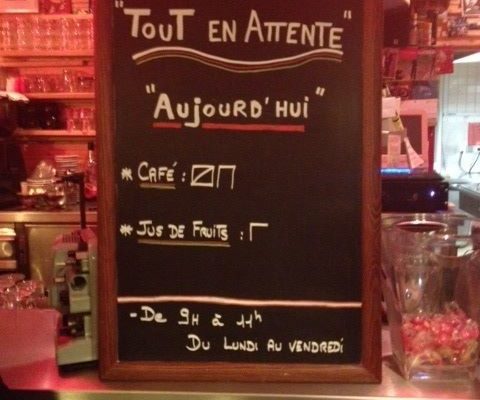 "TOUT EN ATTENTE"
"AUJOURD'HUI"
* CAFÉ :
* JUS DE FRUITS :
- DE 9H à 11h
DU LUNDI AU VENDREDI